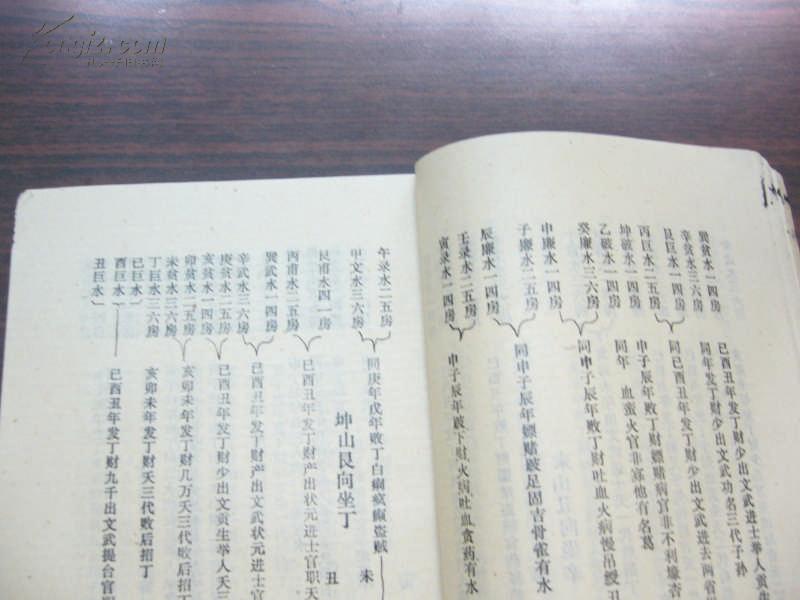 巽贪水一四房
辛贪水三六房
艮巨水一四房
丙巨水二五房
坤破水一四房
乙破水三六房
癸廉水三六房
申廉水一四房
子廉水二五房
辰廉水一四房
壬录水二五房
寅录水一四房
已酉丑年发丁财少出文武进士举人贡生
同年发丁财少出文武功名三代子孙
同已酉丑年发丁财少出文武进去两省
申子辰年败丁财嫖赌病官非不利廉杏
同年 血蚕火官非寡他有名葛
同申子辰年败丁财吐血火病慢吊缓丑
同申子辰年嫖赌跛足固吉骨雀有水
申子辰年跛下财火病吐血贪药有水
午录水二五房
甲文水三六房
艮甫水四一房
丙甫水二五房
巽武水一四房
辛武水三六房
庚贪水二五房
亥贪水一四房
卯贪水二五房
未贪水三六房
丁巨水三六房
巳巨水
酉巨水
丑巨水
同庚年戊年败丁白痢疯癫盗贼
坤山艮向坐丁
未
丑
已酉丑年发丁财产出状元进士官职天
已酉丑年发丁财产出文武状元进士官
已酉丑年发丁财少出文贡生举人天三
亥卯未年发丁财几万天三代败后招丁
亥卯未年发丁财天三代败后招丁
已酉丑年发丁财九千出文武提台官